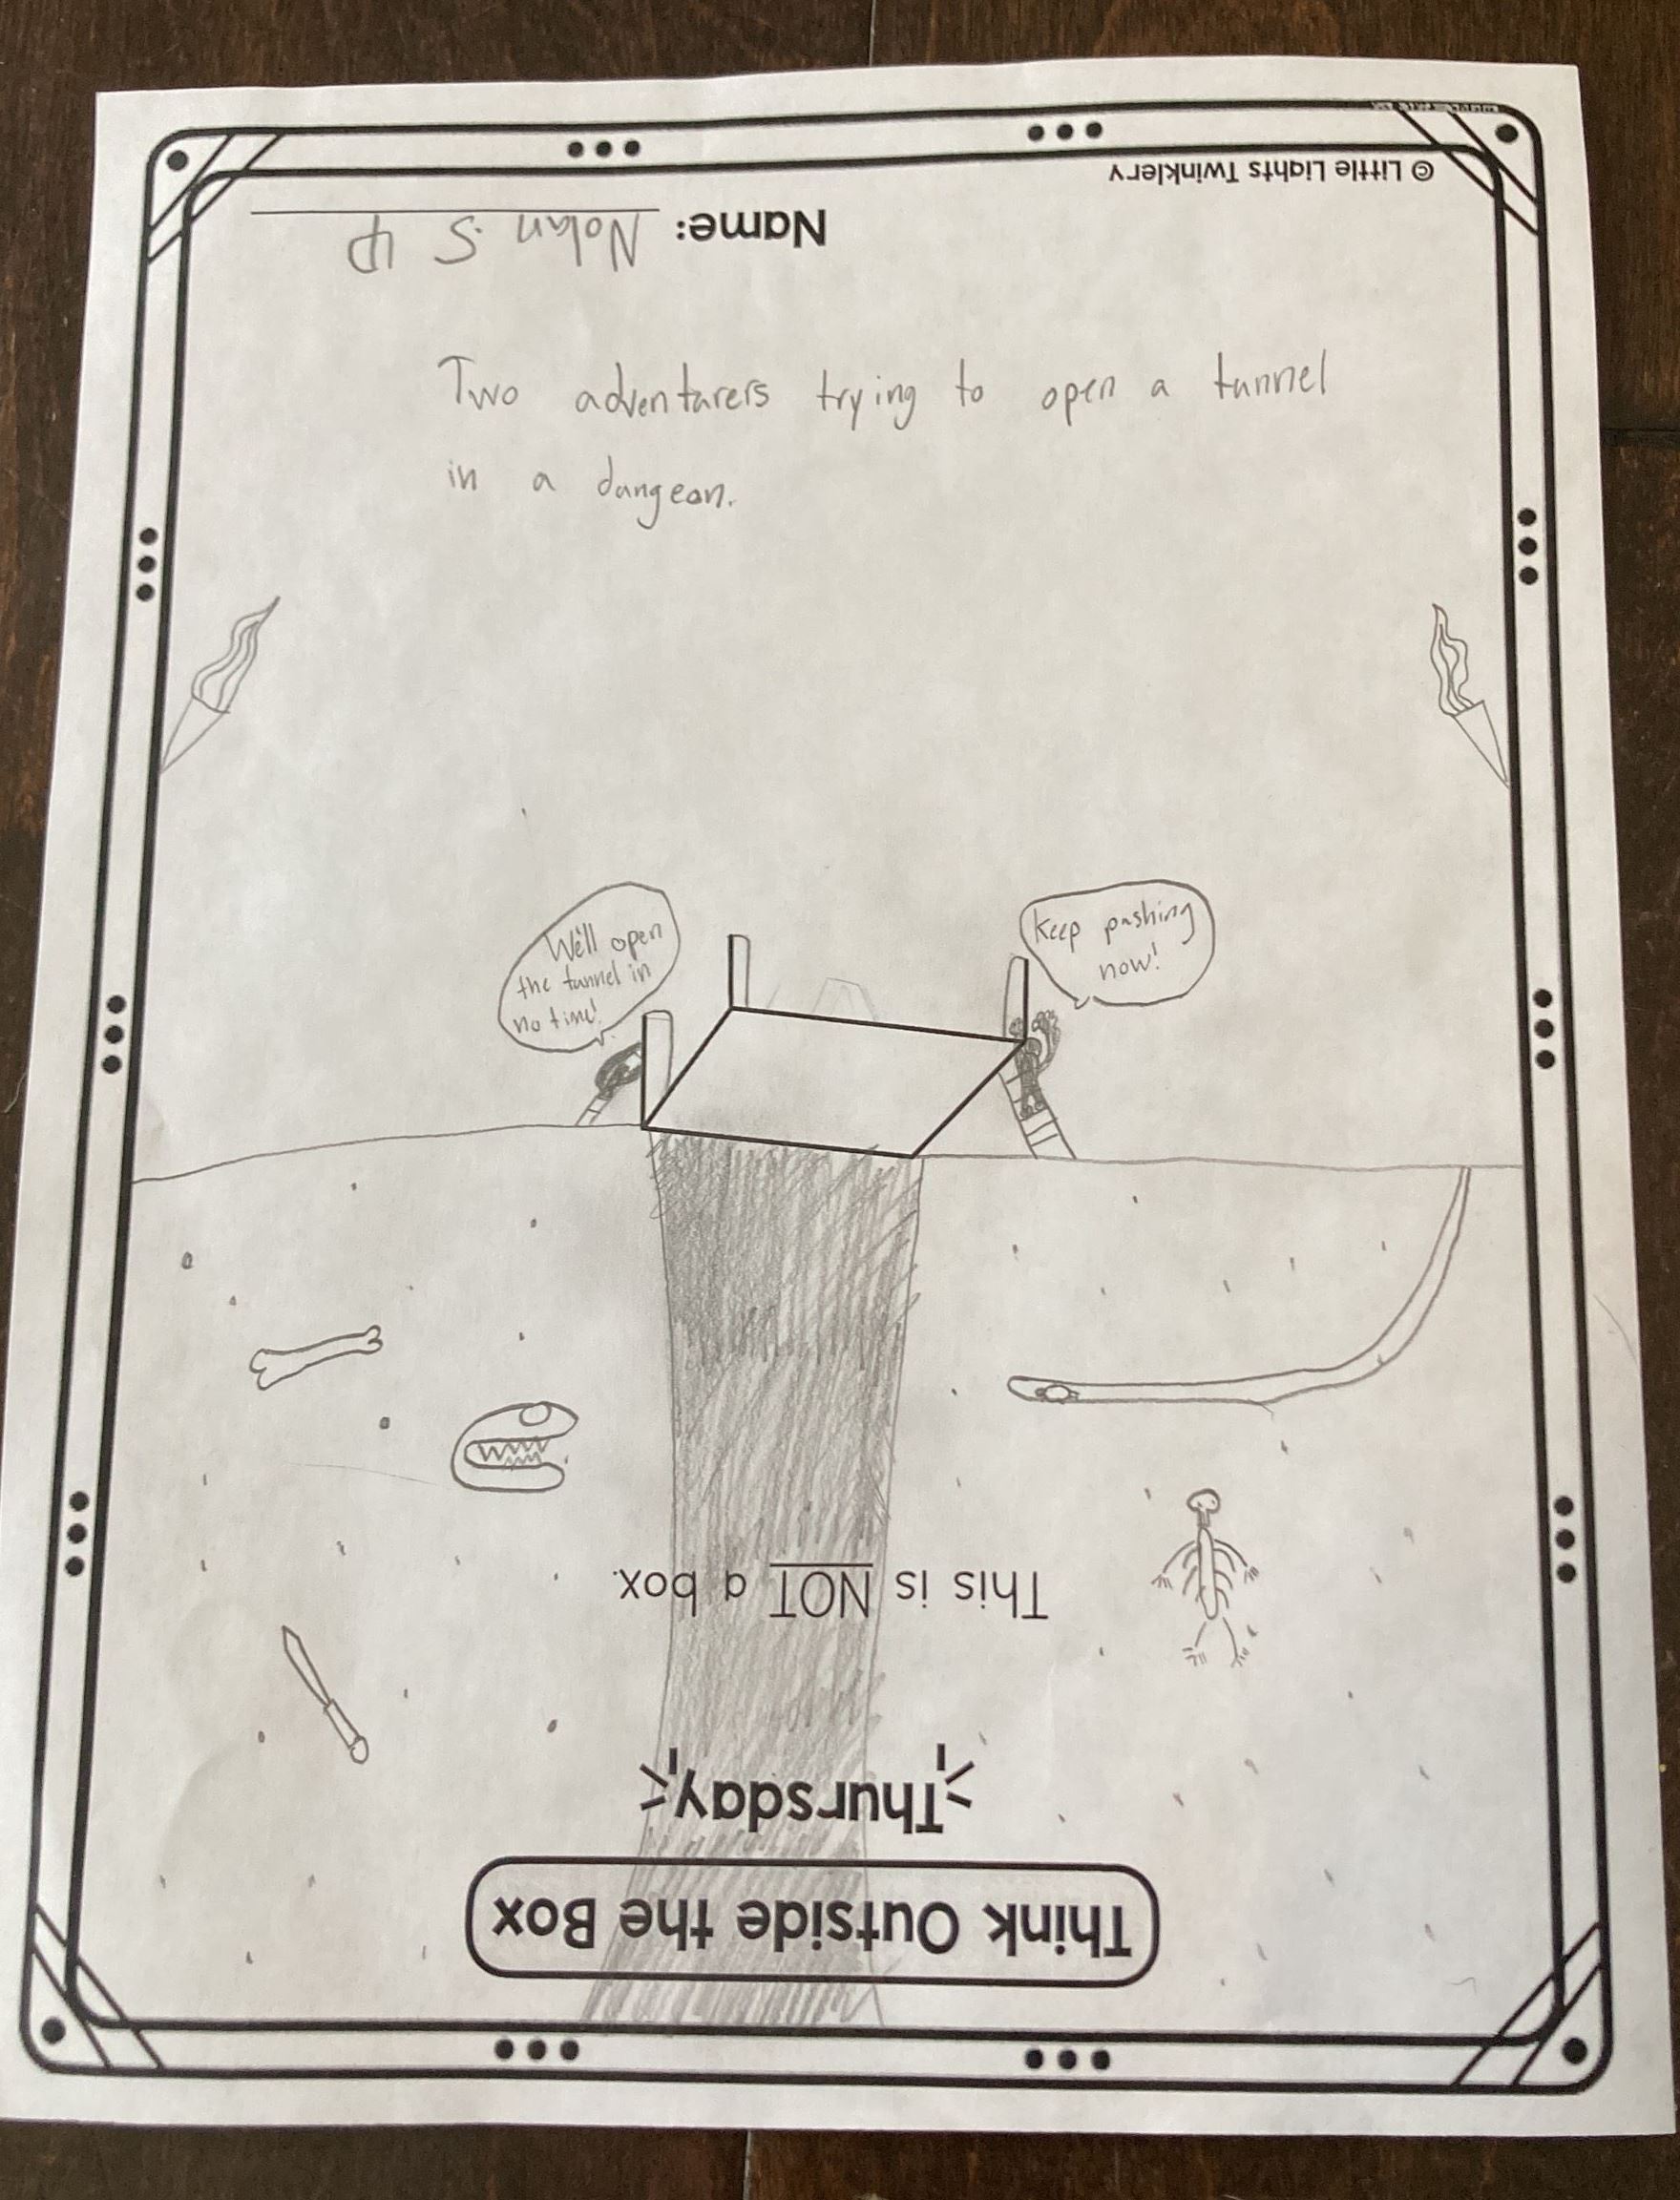 © Little Lights Twinklery
Name: Nolan S
Two adventurers trying to open a tunnel
in a dungeon.
We'll open
the tunnel in
no time!
Keep pushing
now!
This is NOT a box.
Thursday
Think Outside the Box